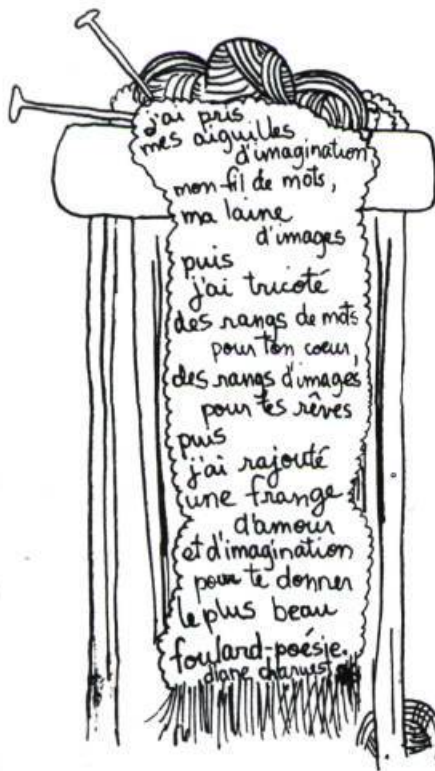 j'ai pris
mes aiguilles
d'imagination,
mon fil de mots,
ma laine
d'images
puis
j'ai tricoté
des rangs de mots
pour ton coeur,
des rangs d'images
pour tes rêves
puis
j'ai rajouté
une frange
d'amour
et d'imagination
pour te donner
le plus beau
foulard-poésie.
diane charvest